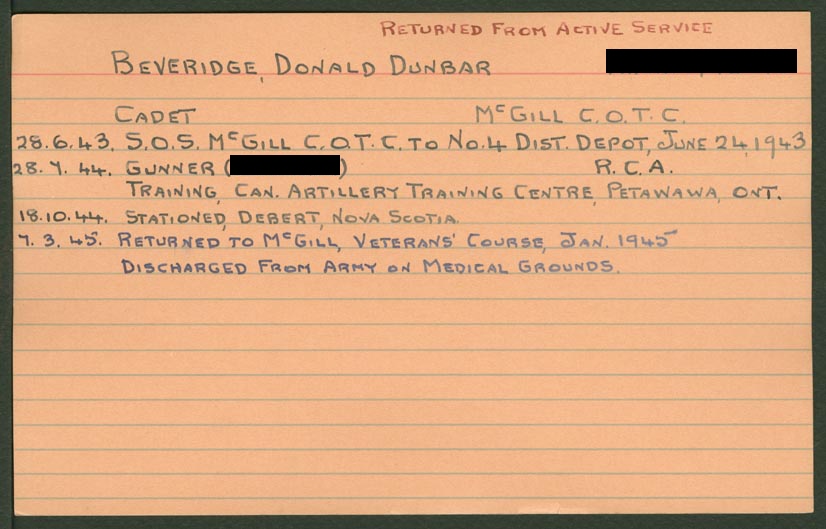 RETURNED FROM ACTIVE SERVICE
BEVERIDGE, DONALD DUNBAR
CADET McGILL C.O.T.C.
28.6.43. S.O.S. McGILL C.O.T.C. TO No.4 DIST. DEPOT, JUNE 24, 1943
28.7.44. GUNNER ( ) R.C.A.
TRAINING, CAN. ARTILLERY TRAINING CENTRE, PETAWAWA, ONT.
18.10.44. STATIONED, DEBERT, NOVA SCOTIA.
7.3.45. RETURNED TO McGILL, VETERANS' COURSE, JAN. 1945
DISCHARGED FROM ARMY ON MEDICAL GROUNDS.